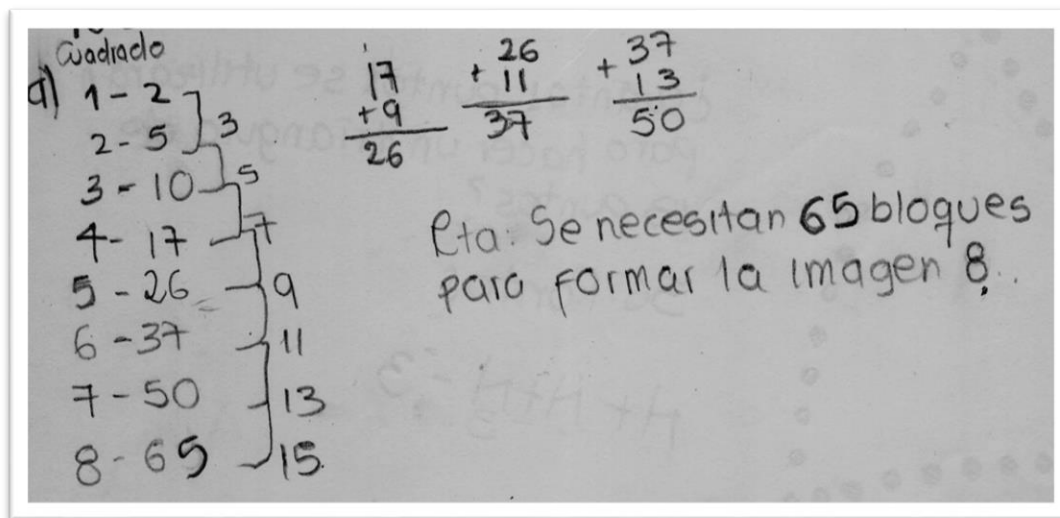 Cuadrado
a) 1 - 2
2 - 5
3
3 - 10
5
4 - 17
7
5 - 26
9
6 - 37
11
7 - 50
13
8 - 65
15
17
+ 9
26
26
+ 11
37
37
+ 13
50
Rta: Se necesitan 65 bloques
para formar la imagen 8.